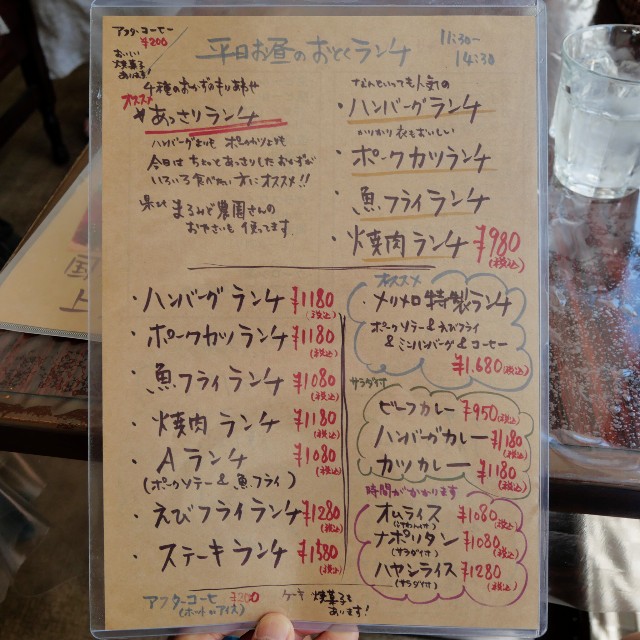 アフターコーヒー
¥200
おいしい
焼菓子
あります!
平日お昼のおとくランチ
11:30〜
14:30
4種のおかずのもりあわせ
オススメ
あっさりランチ
ハンバーグよりも ポークカツよりも
今日は ちょっとあっさりしたおかずが
いろいろ食べたい方にオススメ!!
まるみど農園さんの
おやさいも 使ってます
なんといっても人気の
・ハンバーグランチ
かりかり衣もおいしい
・ポークカツランチ
・魚フライランチ
・焼肉ランチ ¥980
(税込)
・ハンバーグランチ ¥1180
(税込)
・ポークカツランチ ¥1180
(税込)
・魚フライランチ ¥1080
(税込)
・焼肉ランチ ¥1180
(税込)
・Aランチ ¥1080
(税込)
(ポークソテー&魚フライ)
・えびフライランチ ¥1280
(税込)
・ステーキランチ ¥1580
(税込)
オススメ
・メリメロ特製ランチ
ポークソテー&えびフライ
&ミニハンバーグ&コーヒー
¥1.680(税込)
サラダ付
ビーフカレー ¥950(税込)
ハンバーグカレー ¥1180
(税込)
カツカレー ¥1180
(税込)
時間がかかります
オムライス ¥1080
(税込)
ナポリタン ¥1080
(サラダ付) (税込)
ハヤシライス ¥1280
(サラダ付) (税込)
アフターコーヒー ¥200
(ホットorアイス)
ケーキ 焼菓子も
あります!